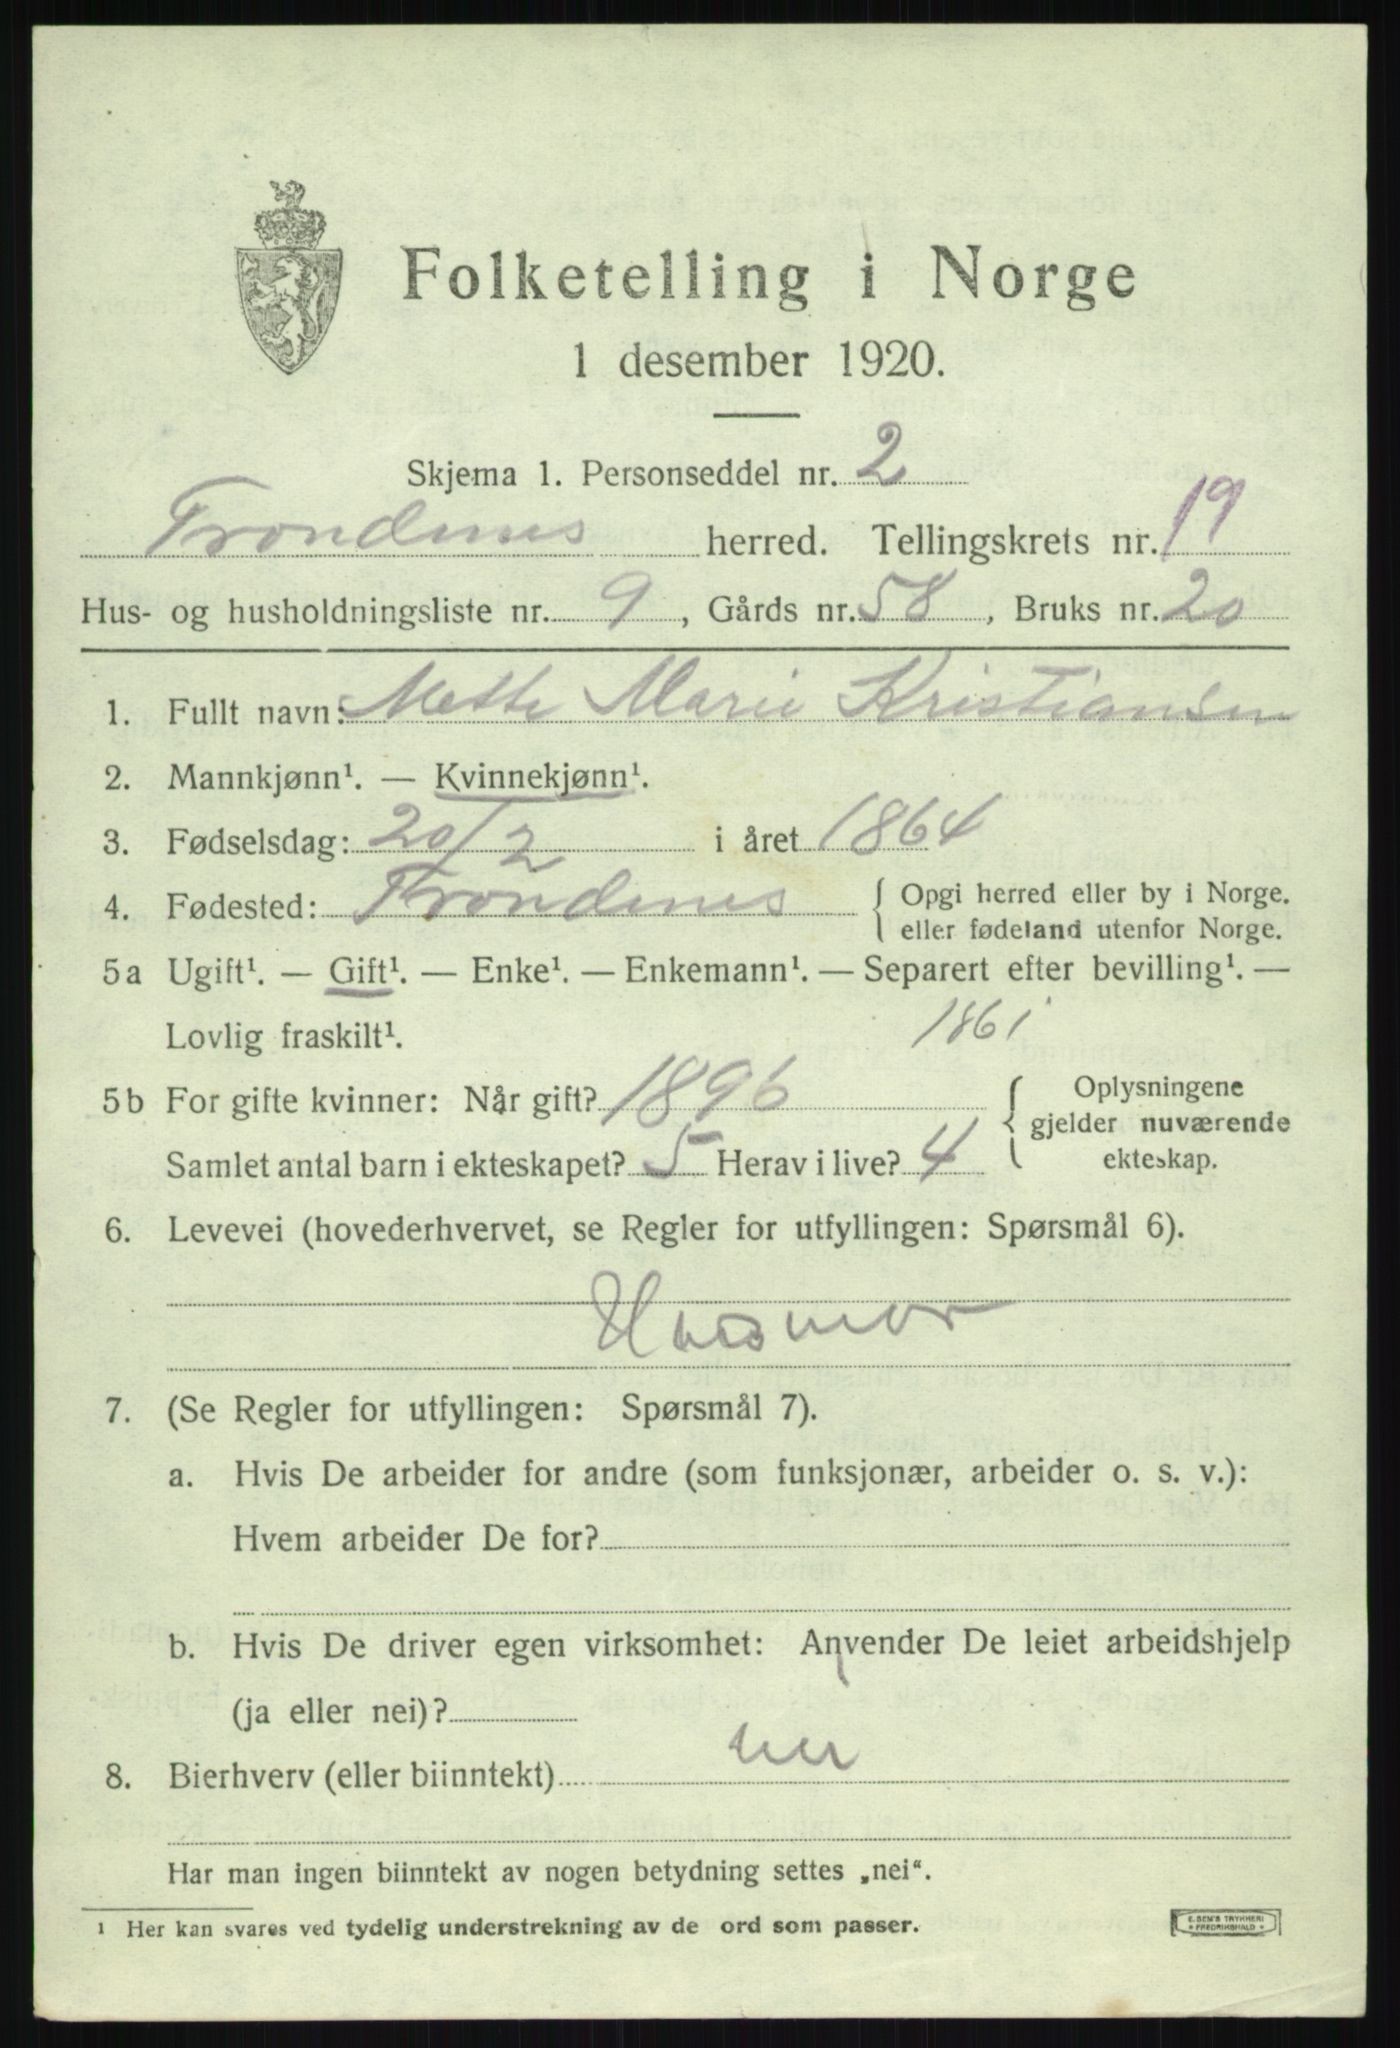 Folketelling i Norge
1 desember 1920.
Skjema 1. Personseddel nr. 2
Trondenes herred. Tellingskrets nr. 19
Hus- og husholdningsliste nr. 9, Gårds nr. 58, Bruks nr. 20
1. Fullt navn: Mette Marie Kristiansen
2. Mannkjønn¹. — Kvinnekjønn¹.
3. Fødselsdag: 20/2 i året 1864
4. Fødested: Trondenes { Opgi herred eller by i Norge.
eller fødeland utenfor Norge.
5a Ugift¹. — Gift¹. — Enke¹. — Enkemann¹. — Separert efter bevilling¹. —
Lovlig fraskilt¹. 1861
5b For gifte kvinner: Når gift? 1896
Samlet antal barn i ekteskapet? 5 Herav i live? 4
{ Oplysningene
gjelder nuværende
ekteskap.
6. Levevei (hovederhvervet, se Regler for utfyllingen: Spørsmål 6).
Husmor
7. (Se Regler for utfyllingen: Spørsmål 7).
a. Hvis De arbeider for andre (som funksjonær, arbeider o. s. v.):
Hvem arbeider De for?
b. Hvis De driver egen virksomhet: Anvender De leiet arbeidshjelp
(ja eller nei)?
8. Bierhverv (eller biinntekt) nei
Har man ingen biinntekt av nogen betydning settes „nei“.
¹ Her kan svares ved tydelig understrekning av de ord som passer.
E. SEM'S TRYKKERI
* FREDRIKSHALD *